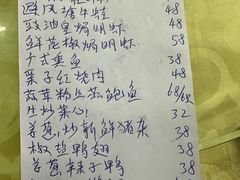 避风塘牛蛙 48
豉油皇焗明虾 48
鲜花椒焗明虾 58
十式桑鱼 38
栗子红烧肉 48
蒜茸粉丝蒸鲍鱼 68/6只
生炒菜心 32
姜葱炒新鲜猪杂 38
椒盐鸭翅 38
姜葱辣子鸭 38